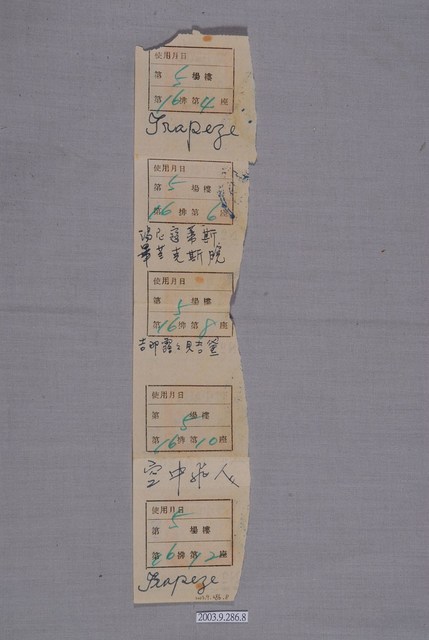 使用月日
第 5 場樓
第 16 排 第 4 座
Trapeze
使用月日
第 5 場樓
第 16 排 第 6 座
畢蘭克斯脫
使用月日
第 5 場樓
第 16 排 第 8 座
使用月日
第 5 場樓
第 16 排 第 10 座
空中飛人
使用月日
第 5 場樓
第 16 排 第 12 座
Trapeze
2003.9.286.8
2003.9.286.8